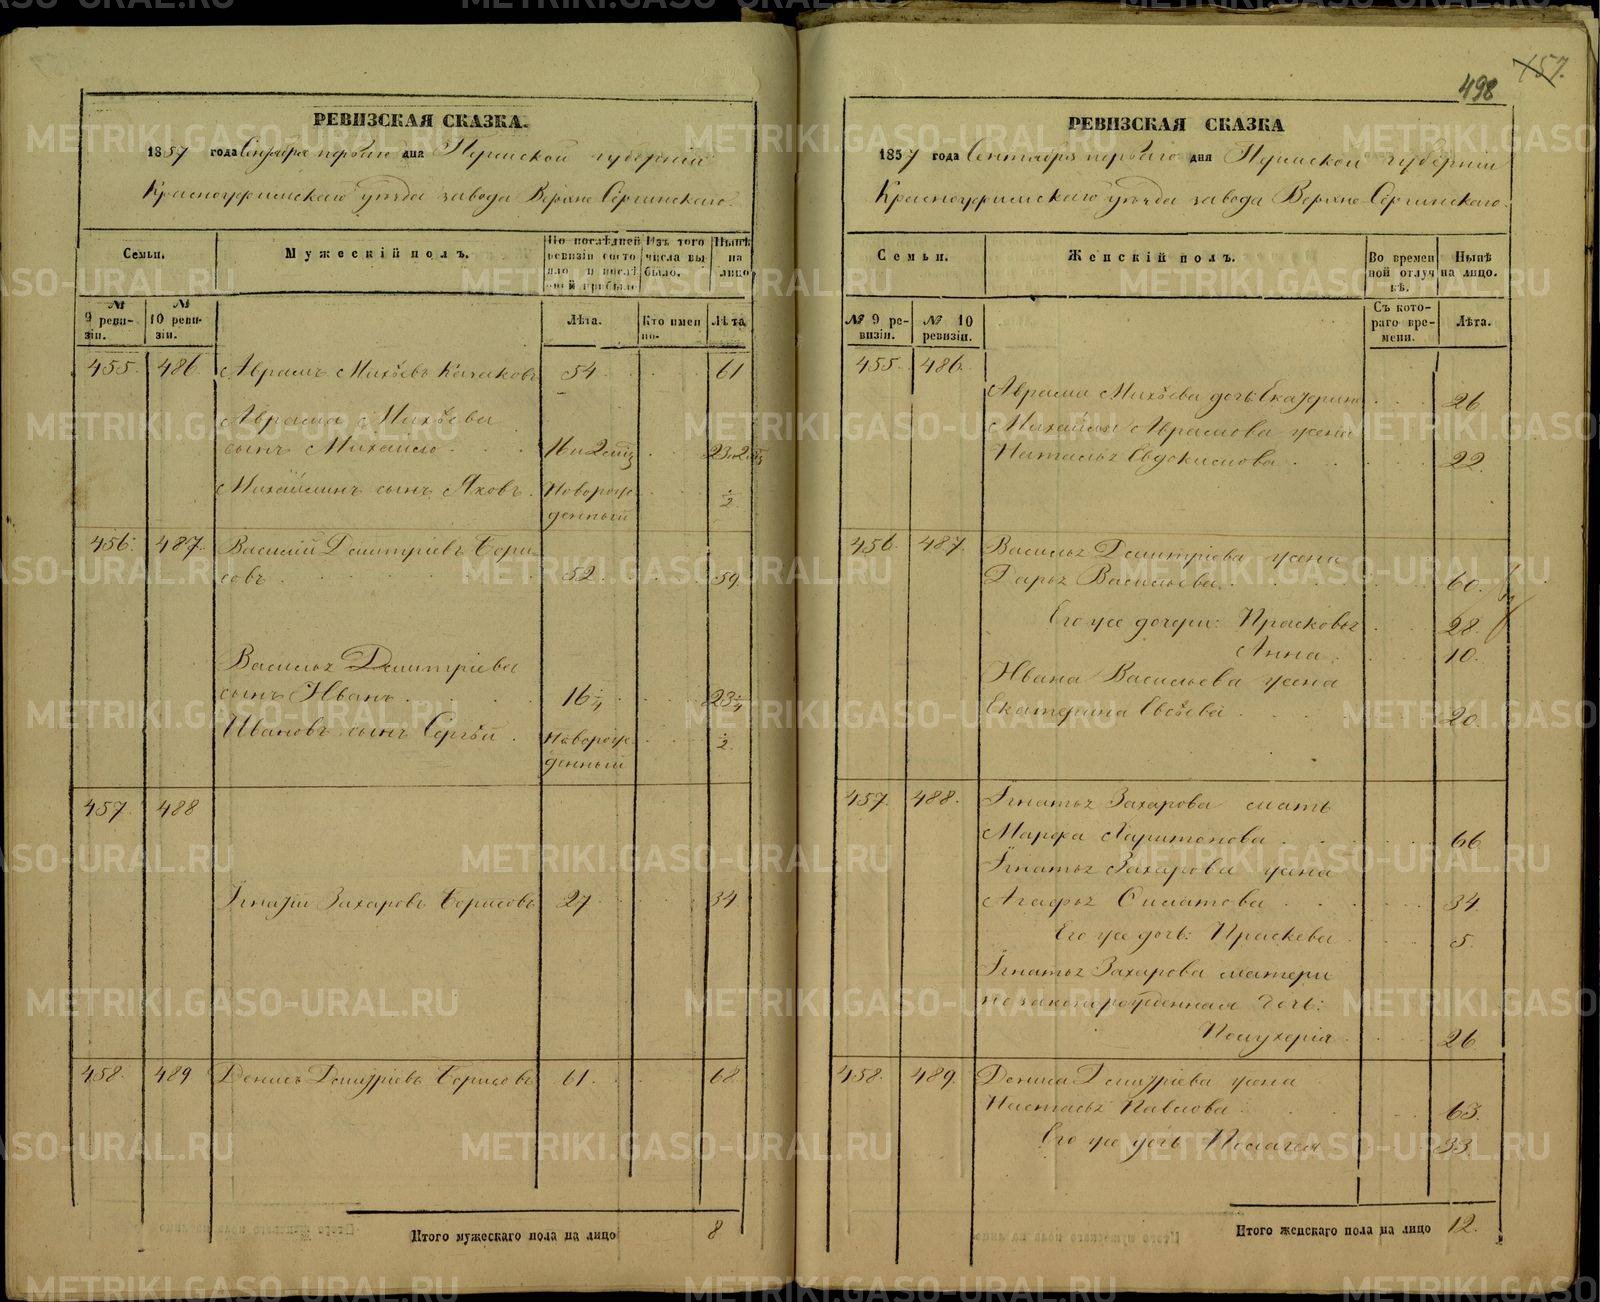 157.
498
РЕВИЗСКАЯ СКАЗКА.
1857 года Сентября первого дня Пермской губернiи
Красноуфимскаго уѣзда завода Верхне Сергинскаго
Семьи.
Мужескiй полъ.
По послѣдней ревизiи состояло и послѣ оной прибыло
Изъ того числа выбыло.
Нынѣ на лицо
№ 9 ревизiи.
№ 10 ревизiи.
Лѣта.
Кто именно.
Лѣта
455. 486. Аврамъ Михѣевъ Казаковъ 54. 61
Аврама Михѣева
сынъ Михайло 16 и 2 мц 23 и 2 мц
Михайлинъ сынъ Яковъ. Новорож- 1/2
денный
456. 487. Василiй Дмитрiевъ Бори-
совъ 52. 59.
Василья Дмитрiева
сынъ Иванъ. 16 1/4 23 1/4
Ивановъ сынъ Сергѣй. Новорож- 1/2.
денный
457. 488
Игнатiй Захаровъ Борисовъ 27 34
458. 489 Денисъ Дмитрiевъ Борисовъ 61. 68
Итого мужескаго пола на лицо 8
РЕВИЗСКАЯ СКАЗКА
1857 года Сентября перваго дня Пермской губернiи
Красноуфимскаго уѣзда завода Верхне Сергинскаго.
Семьи.
Женскiй полъ.
Во временной отлучкѣ.
Нынѣ на лицо.
№ 9 ревизiи.
№ 10 ревизiи.
Съ котораго времени.
Лѣта.
455. 486.
Аврама Михѣева дочь Екатерина 26
Михайлы Аврамова жена
Наталья Евдокимова 22.
456. 487. Василья Дмитрiева жена
Дарья Васильева. 60.
Его же дочери: Прасковья 28.
Анна. 10.
Ивана Васильева жена
Екатерина Евсѣева 20.
457. 488. Игнатья Захарова мать
Марфа Харитонова 66
Игнатья Захарова жена
Агафья Силатова 34.
Его же дочь: Праскева 5.
Игнатья Захарова матери
незаконнорожденная дочь:
26
458. 489. Дениса Дмитрiева жена
Настасья Павлова 63.
Его же дочь Пелагея 33
Итого женскаго пола на лицо 12.
METRIKI.GASO-URAL.RU